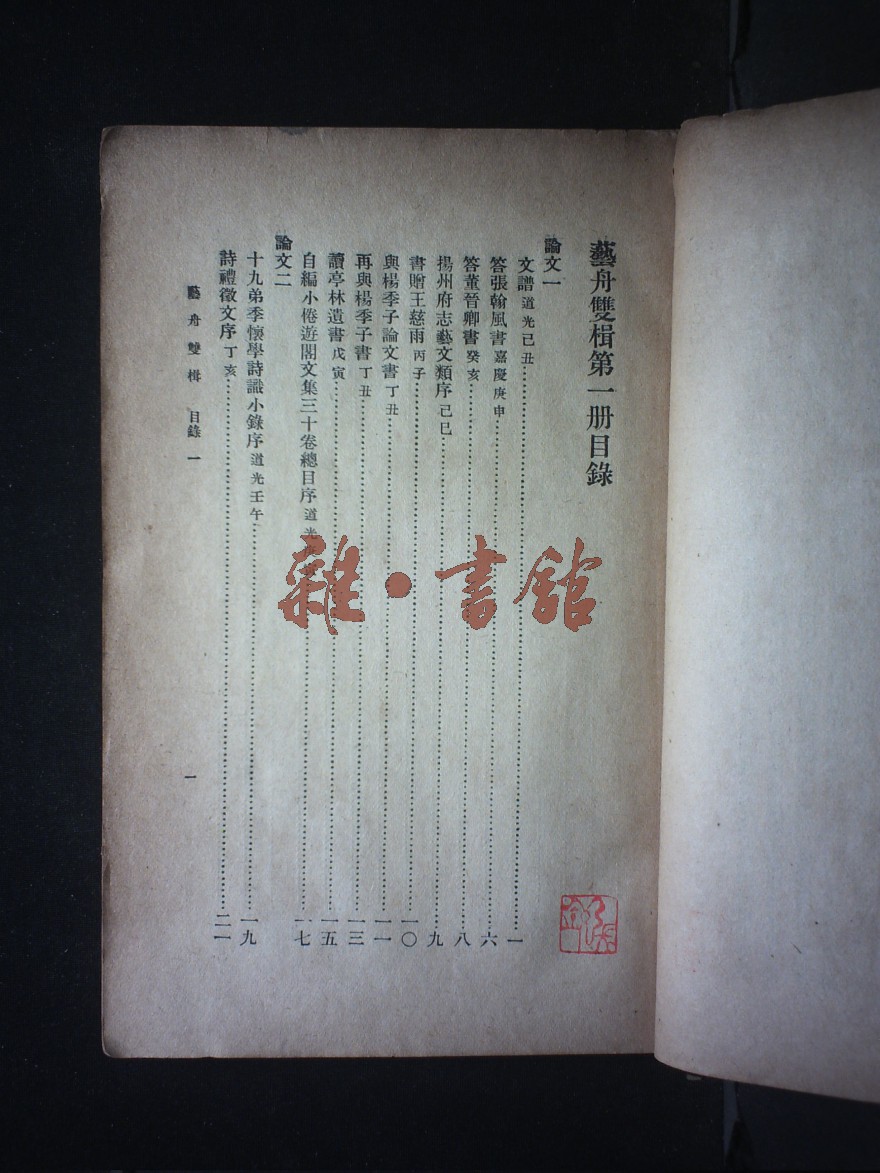 藝舟雙楫第一册目錄
論文一
文譜 道光己丑……一
答張翰風書 嘉慶庚申……六
答董晉卿書 癸亥……八
揚州府志藝文類序 己巳……九
書贈王慈雨 丙子……一〇
與楊季子論文書 丁丑……一一
再與楊季子書 丁丑……一三
讀亭林遺書 戊寅……一五
自編小倦遊閣文集三十卷總目序 道光……一七
論文二
十九弟季懷學詩識小錄序 道光壬午……一九
詩禮徵文序 丁亥……二一
藝舟雙楫 目錄一
一
雜·書館